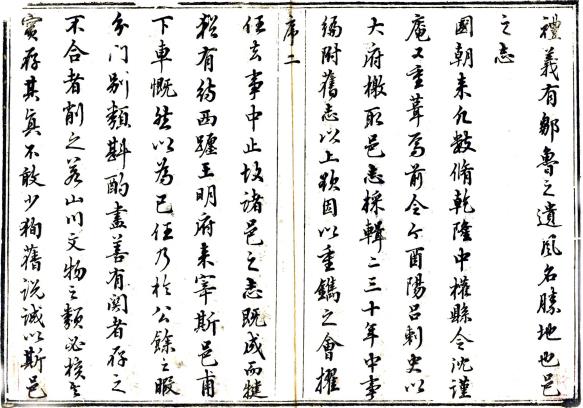 禮義有鄒魯之遺風名勝地也邑
之志
國朝來凡數脩乾隆中權縣令沈謹
庵又重葺焉前令尹酉陽呂刺史以
大府檄取邑志採輯二三十年中事
編附舊志以上欲因以重鐫之會擢
序二
任去事中止故諸邑之志既成而犍
猶有待西躔王明府來宰斯邑甫
下車慨然以為己任乃於公餘之暇
分门别類斟酌盡善有関者存之
不合者削之若山川文物之類必核其
實存其真不敢少徇舊说诚以斯邑